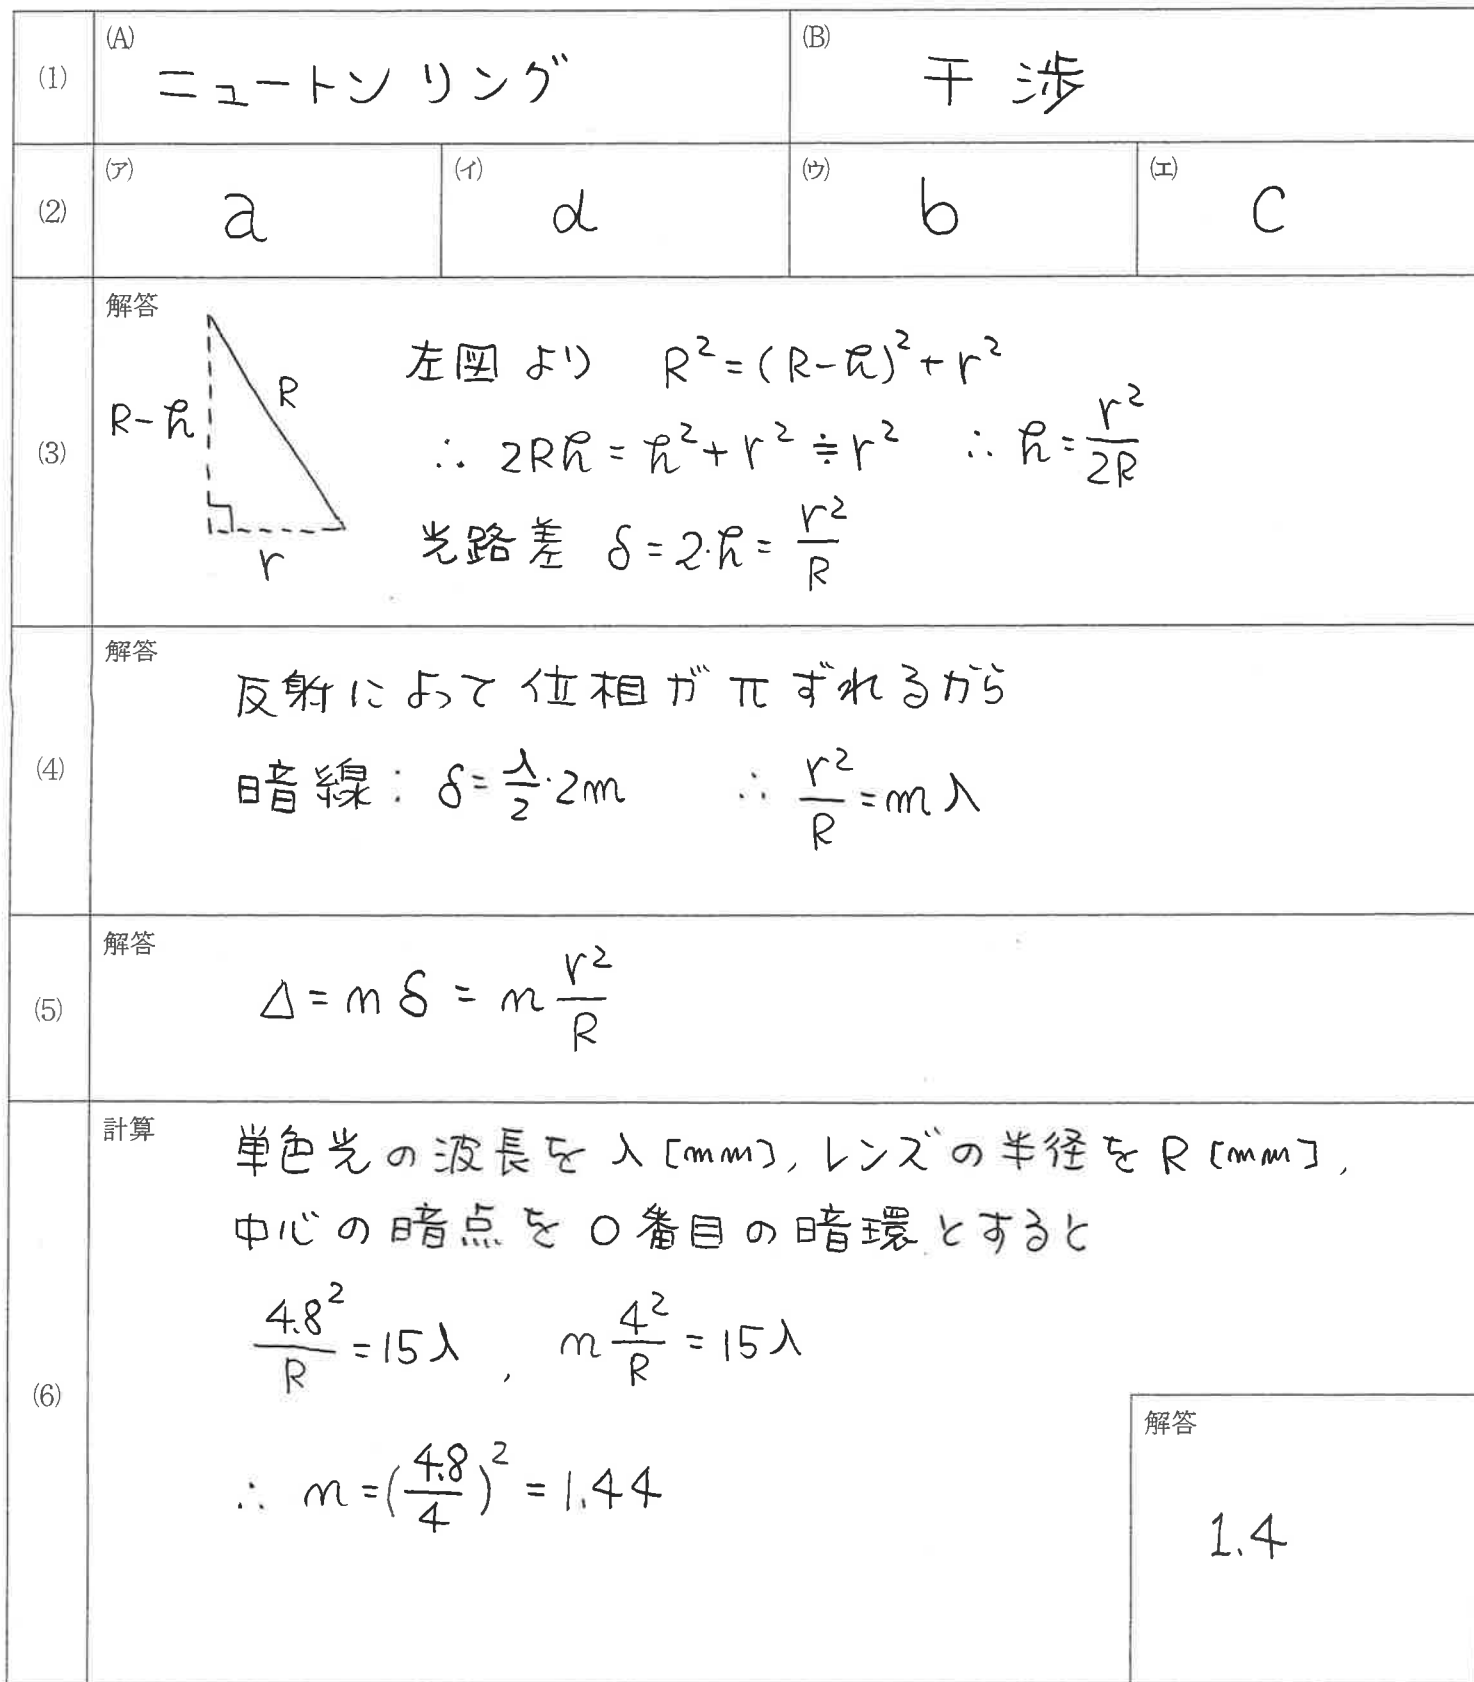 (1) (A) ニュートンリング (B) 干渉
(2) (ア) a (イ) d (ウ) b (エ) c
(3) 解答
R-h R r
左図より R²=(R-h)²+r²
∴ 2Rh=h²+r²≒r² ∴ h=r²/2R
光路差 δ=2・h=r²/R
(4) 解答
反射によって位相がπずれるから
暗線: δ=λ/2・2m ∴ r²/R=mλ
(5) 解答
Δ=nδ=n r²/R
(6) 計算
単色光の波長をλ[mm],レンズの半径をR[mm],
中心の暗点を0番目の暗環とすると
4.8²/R=15λ , n 4²/R=15λ
∴ n=(4.8/4)²=1.44
解答
1.4